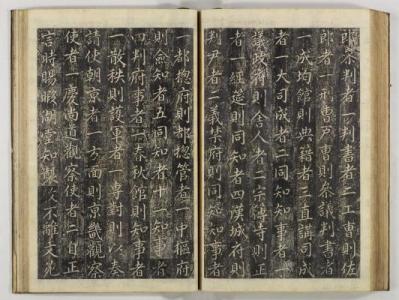 郎亦判者一判書者二工曹則佐
郎者一刑曹戶曹則叅議判書者
一成均館則典籍者三直講司成
者一大司成者二同知知事者一
議政府則舍人者二宗簿寺則正
者一經筵則同知者四漢城府則
判尹者二義禁府則同知知事者
一都摠府則都摠管者一中樞府
則僉知者五同知者十一知事者
四判府事者一春秋館則知事者
一散秩則護軍者一專對則以奏
請使朝京者一方面則京畿觀察
使者一慶尚道觀察使者二自正
言時賜暇湖堂知製久不離